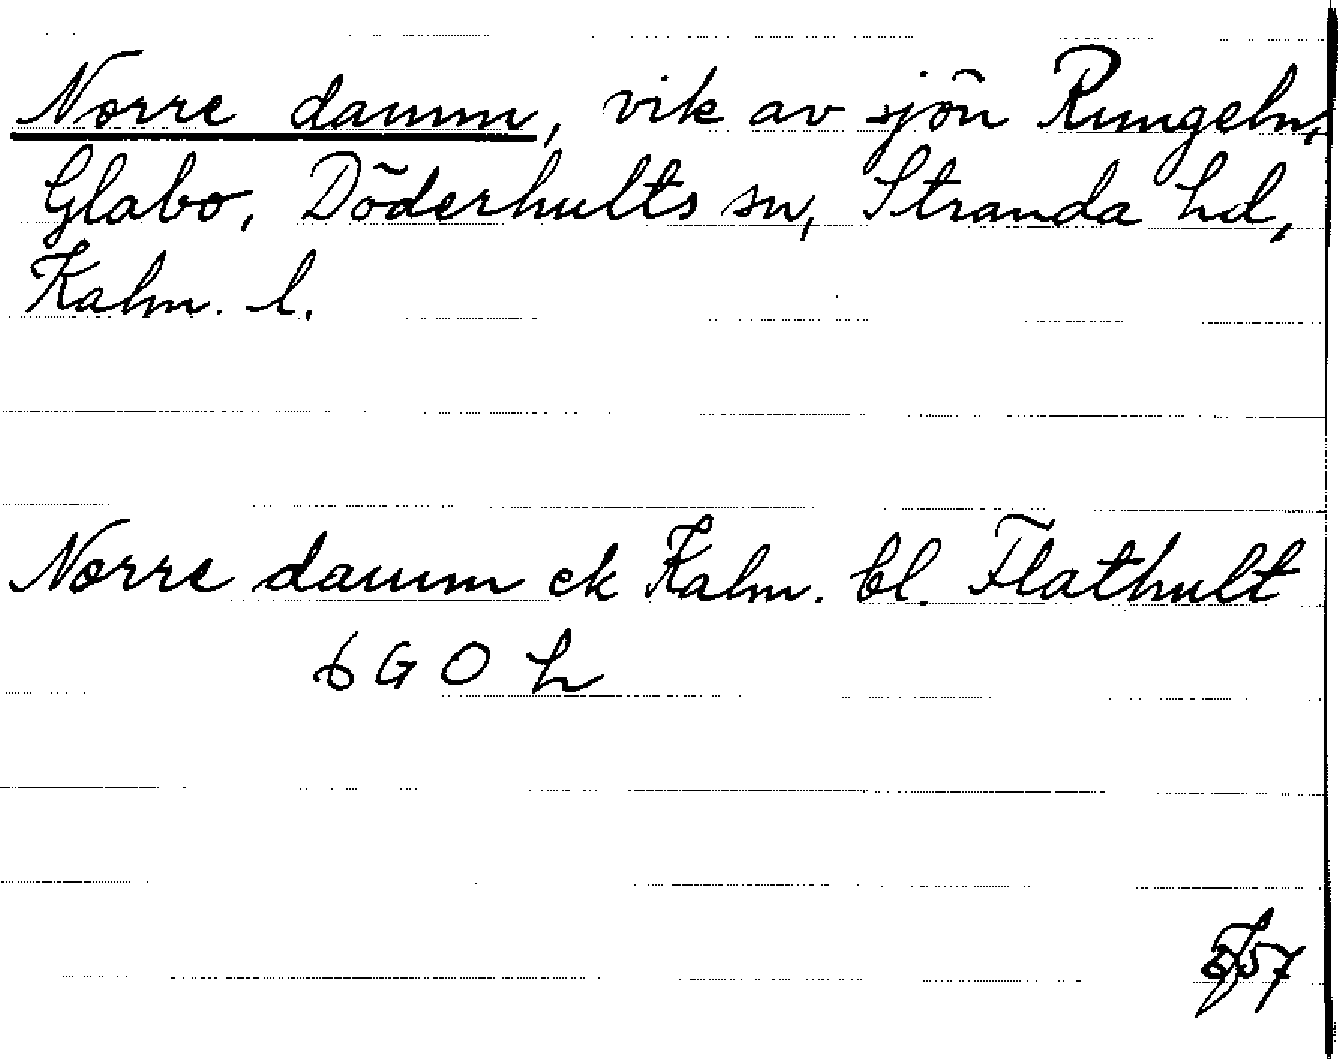 Norre damm, vik av sjön Rungeln,
Glabo, Döderhults sn, Stranda hd,
Kalm. l.
Norre damm ek Kalm. bl. Flathult
6 G O h